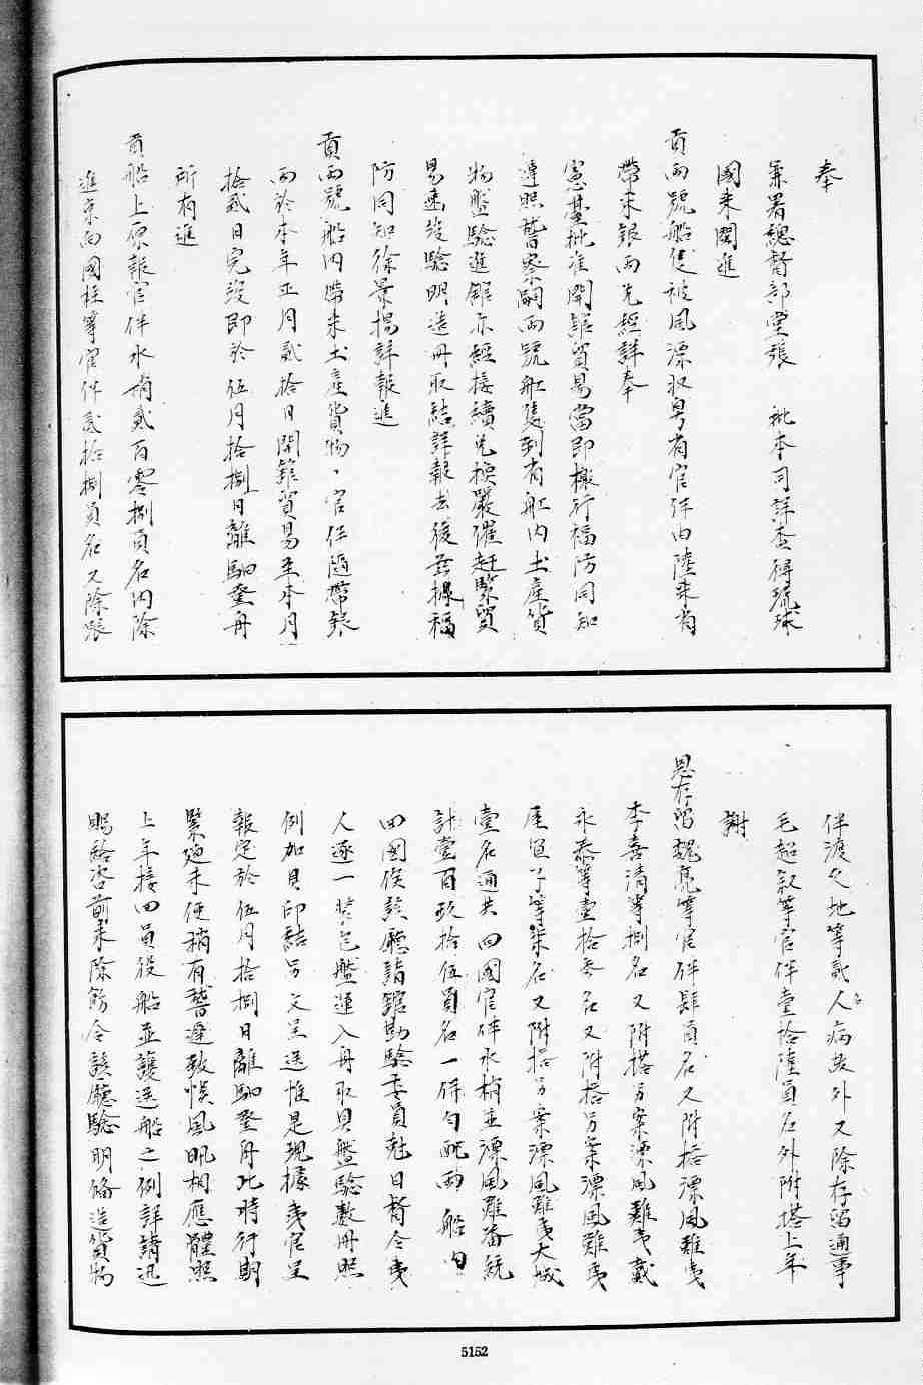 奉
兼署總督部堂張　批本司詳查得琉球
國来閩進
貢兩號船隻被風漂收粤省官伴由陸来省
帶来銀两先經詳奉
憲臺批准開館貿易當即檄行福防同知
遵照督察嗣两號舡隻到省舡内土產貨
物盤驗進館亦經接續兌換嚴催赶緊貿
易速竣驗明造册取結詳報去後兹據福
防同知徐景揚詳報進
貢两號船内帶来土產貨物、官伴隨帶銀
两於本年正月貳拾日開舘貿易至本月
拾貳日完竣即於伍月拾捌日離馹登舟
所有進
貢船上原報官伴水梢貳百零捌員名内除
進京向國柱等官伴貳拾捌員名又除張
伴渡久地等貳人名病故外又除存留通事
毛超叙等官伴壹拾陸員名外附搭上年
謝
恩存留魏亮等官伴肆員名又附搭漂風難夷
本喜清等捌名又附搭另案漂風難夷戴
永泰等壹拾叁名又附搭另案漂風難夷
屋宜子等柒名又附搭另案漂風難夷大城
壹名通共回國官伴水梢並漂風難番統
計壹百玖拾伍員名一併勻配两船内
回國俟該廳請舘勘驗委員尅日督令夷
人逐一裝包盤運入舟取具盤驗數册照
例加具印結另文呈送惟是現據夷官呈
報定於伍月拾捌日離馹登舟此時行期
緊廹未便稍有瞀遲致悞風帆相應體照
上年接回員役船並護送船之例詳請迅
賜給咨前来除飭令該廳驗明脩造貨物
5152